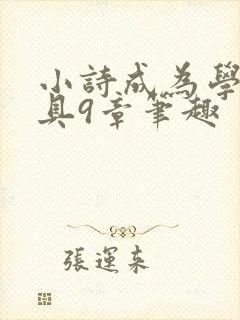 小詩成為學
具9章筆趣
張運來